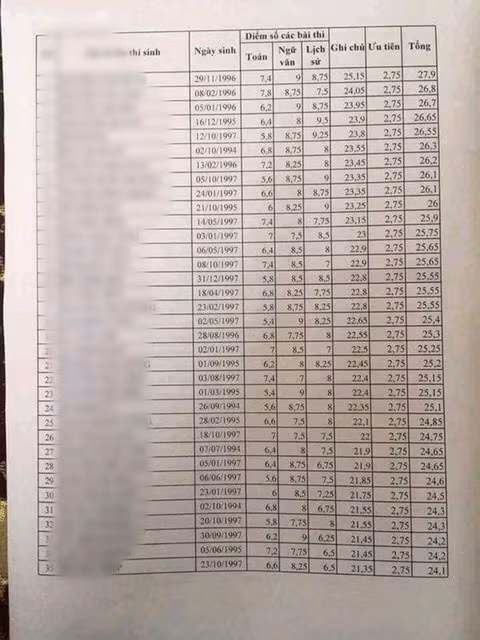 thí sinh Ngày sinh Điểm số các bài thi Ghi chú Ưu tiên Tổng
Toán Ngữ văn Lịch sử
29/11/1996 7,4 9 8,75 25,15 2,75 27,9
08/02/1996 7,8 8,75 7,5 24,05 2,75 26,8
05/01/1996 6,2 9 8,75 23,95 2,75 26,7
16/12/1995 6,4 8 9,5 23,9 2,75 26,65
12/10/1997 5,8 8,75 9,25 23,8 2,75 26,55
02/10/1994 6,8 8,75 8 23,55 2,75 26,3
13/02/1996 7,2 8,25 8 23,45 2,75 26,2
05/10/1997 5,6 8,75 9 23,35 2,75 26,1
24/01/1997 6,6 8 8,75 23,35 2,75 26,1
21/10/1995 6 8,25 9 23,25 2,75 26
14/05/1997 7,4 8 7,75 23,15 2,75 25,9
03/01/1997 7 7,5 8,5 23 2,75 25,75
06/05/1997 6,4 8,5 8 22,9 2,75 25,65
08/10/1997 7,4 8,5 7 22,9 2,75 25,65
31/12/1997 5,8 8,5 8,5 22,8 2,75 25,55
18/04/1997 6,8 8,25 7,75 22,8 2,75 25,55
23/02/1997 5,8 8,75 8,25 22,8 2,75 25,55
02/05/1997 5,4 9 8,25 22,65 2,75 25,4
28/08/1996 6,8 7,75 8 22,55 2,75 25,3
02/01/1997 7 8,5 7 22,5 2,75 25,25
01/09/1995 6,2 8 8,25 22,45 2,75 25,2
22 03/08/1997 7,4 7 8 22,4 2,75 25,15
23 01/03/1995 5,4 9 8 22,4 2,75 25,15
24 26/09/1994 5,6 8,75 8 22,35 2,75 25,1
25 28/02/1995 6,6 7,5 8 22,1 2,75 24,85
26 18/10/1997 7 7,5 7,5 22 2,75 24,75
27 07/07/1994 6,4 8 7,5 21,9 2,75 24,65
28 05/01/1997 6,4 8,75 6,75 21,9 2,75 24,65
29 06/06/1997 5,6 8,75 7,5 21,85 2,75 24,6
30 23/01/1997 6 8,5 7,25 21,75 2,75 24,5
31 02/10/1994 6,8 8 6,75 21,55 2,75 24,3
20/10/1997 5,8 7,75 8 21,55 2,75 24,3
30/09/1997 6,2 9 6,25 21,45 2,75 24,2
05/06/1995 7,2 7,75 6,5 21,45 2,75 24,2
35 23/10/1997 6,6 8,25 6,5 21,35 2,75 24,1